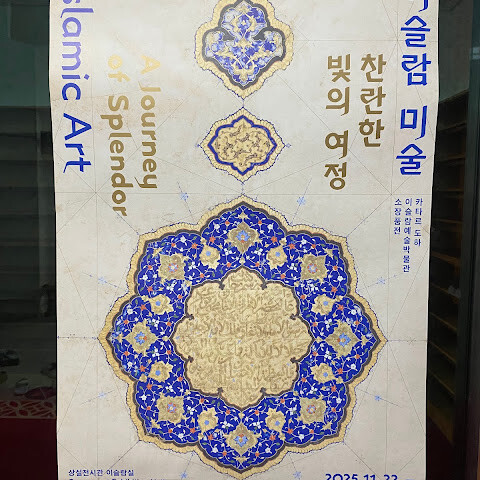 이슬람 미술
찬란한
빛의 여정
카타르 도하
이슬람예술박물관
소장품전
slamic Art
A Journey
of Splendor
상설전시관 이슬람실
2025.11.22